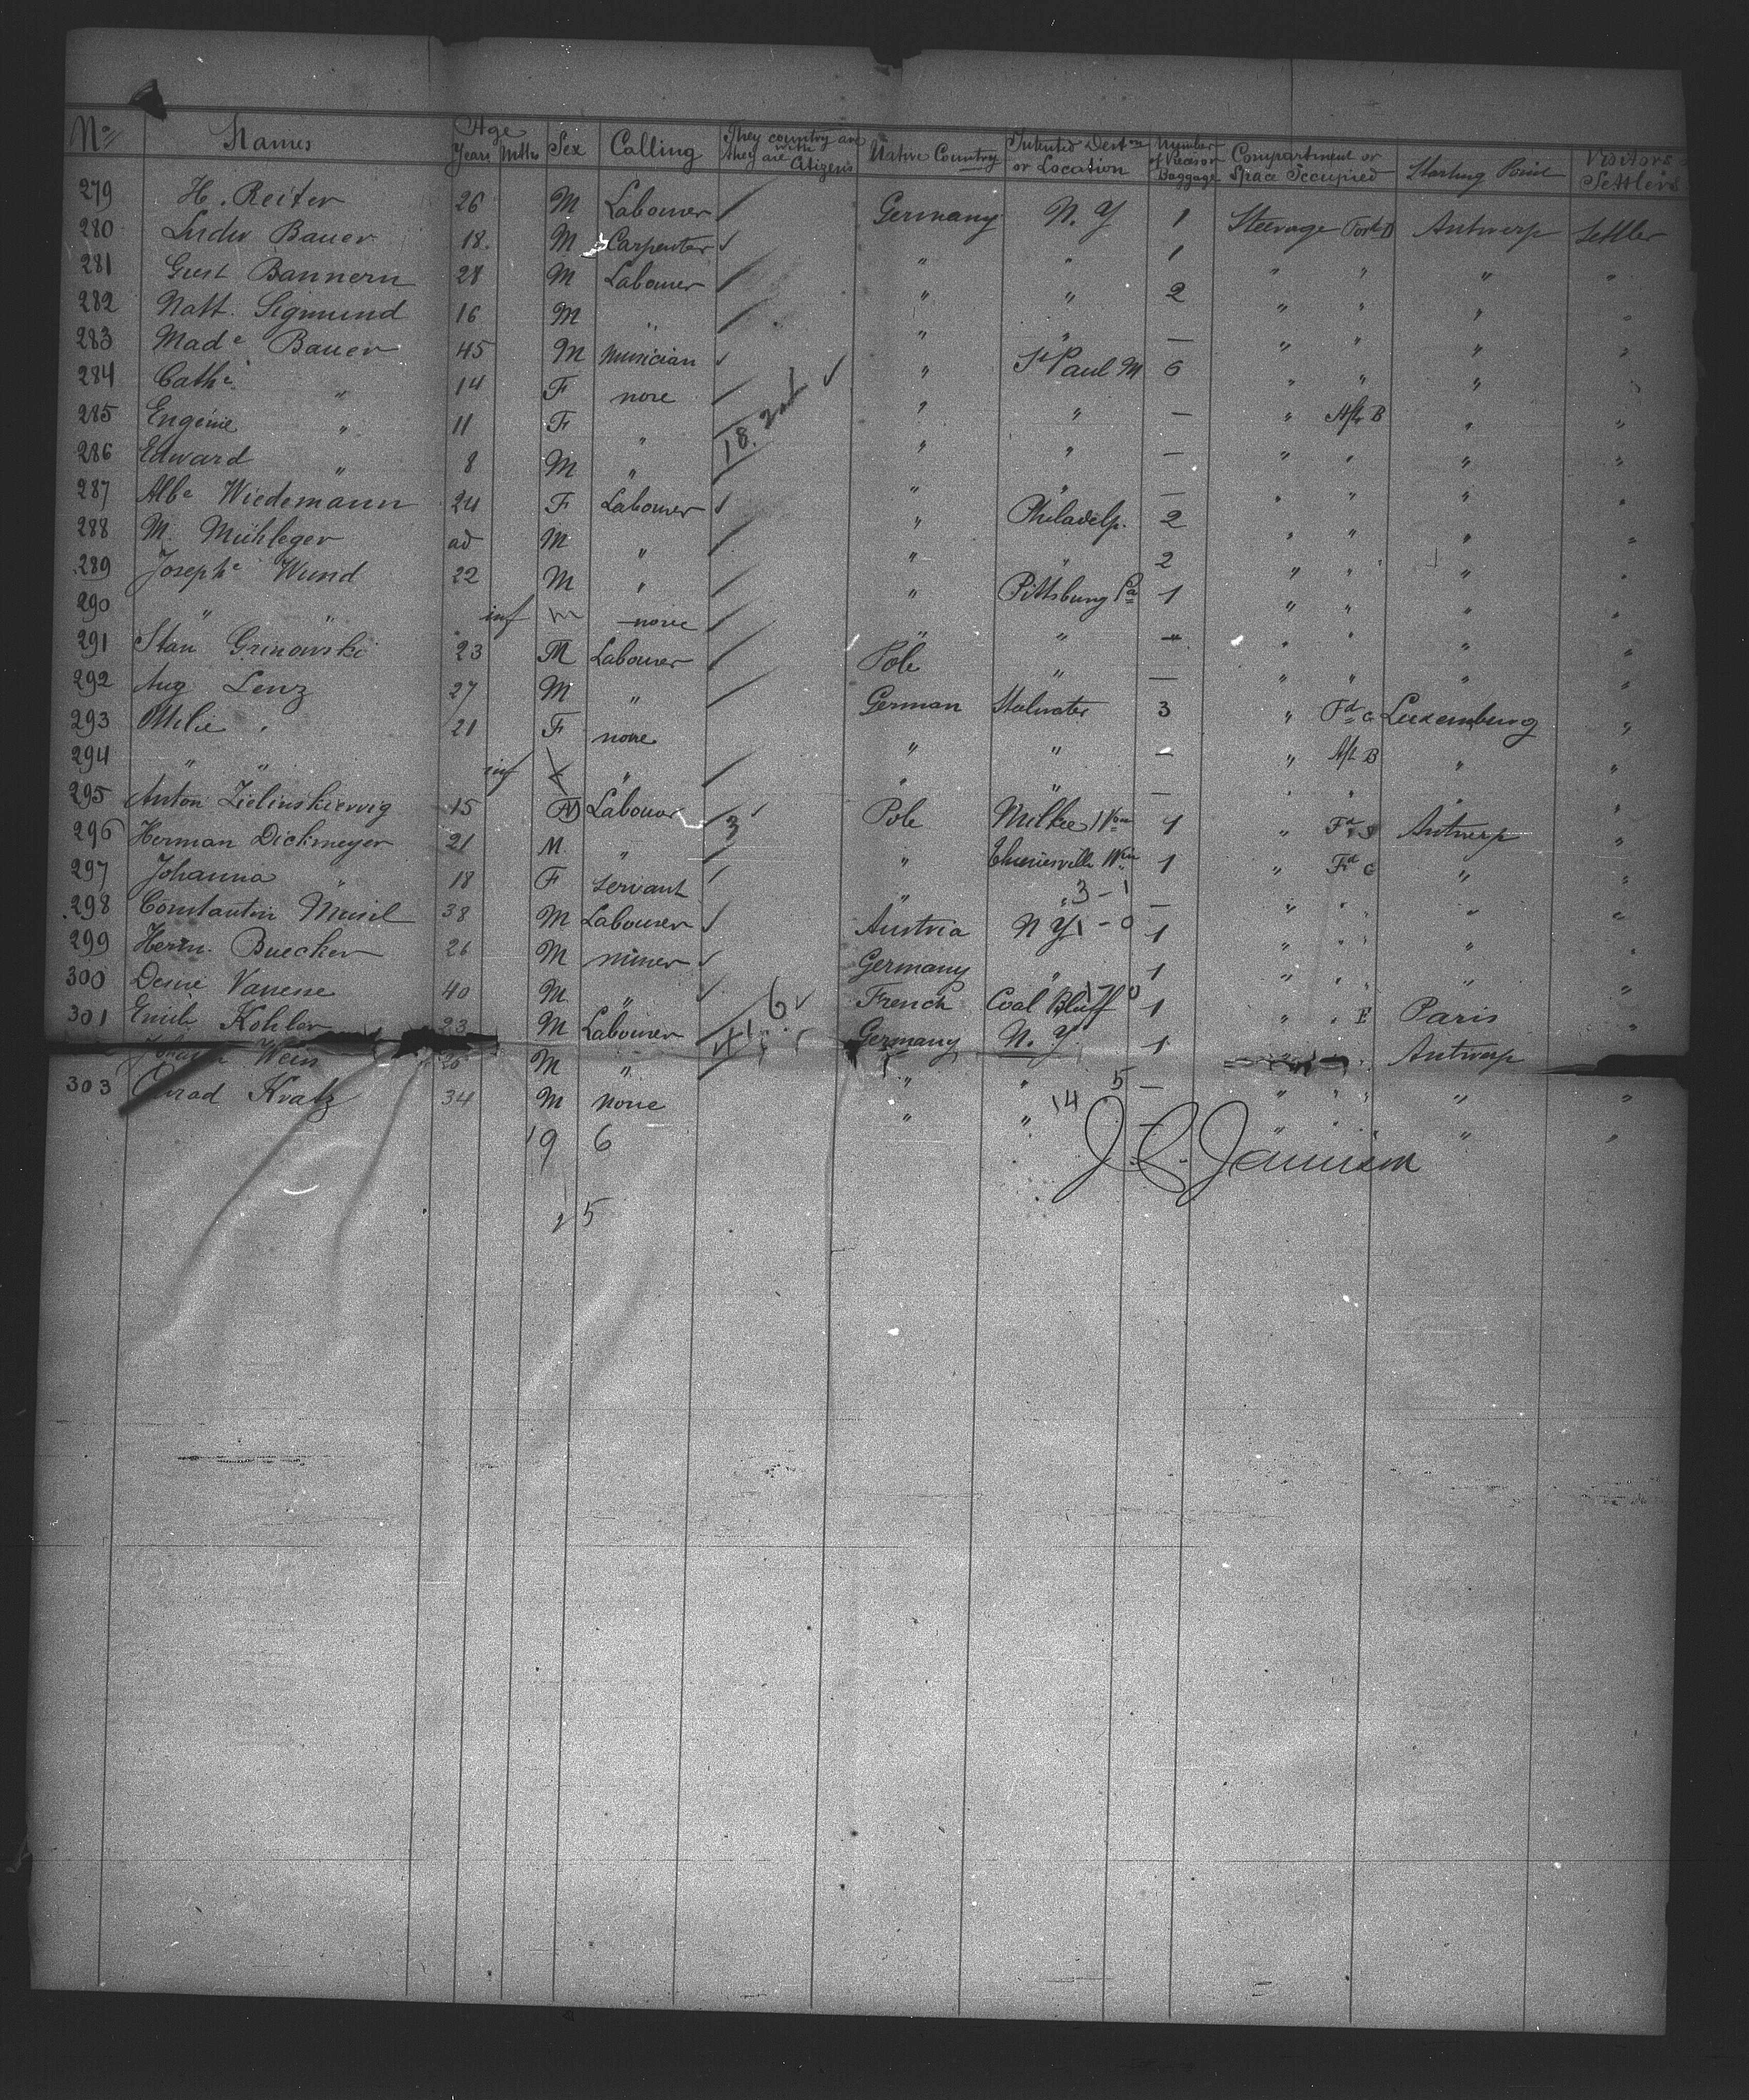 Nº Names Age Years Mths Sex Calling They country are with they are Citizens Native Country Intented Destⁿ or Location Number of Pieces of Baggage Compartment or Space Occupied Starting Point Visitors Settlers
279 H. Reiter 26 M Labourer Germany N. Y 1 Steerage Fort D Antwerp Settler
280 Ludw Bauer 18. M Carpenter " " 1 " " " "
281 Gust Bannern 28 M Labourer " " 2 " " " "
282 Natt. Sigmund 16 M " " " — " " " "
283 Madᵉ Bauer 45 M Musician " St Paul M 6 " " " "
284 Cathᵉ " 14 F none " " — " Aft B " "
285 Engénie " 11 F " " " — " " " "
286 Edward " 8 M " " " — " " " "
18. 2nd
287 Albᵉ Wiedemann 24 F Labourer " Philadelp. 2 " " " "
288 M. Mühleger ad M " " " 2 " " " "
289 Josephᵉ Wund 22 M " " Pittsburg Pa 1 " " " "
290 " " inf m none " " " " " " "
291 Stan Grinowski 23 M Labourer Pole " — " " " "
292 Aug Lenz 27 M " German Stalwater 3 " Fd C Luxemburg "
293 Ottilie " 21 F none " " — " Aft B " "
294 " " inf " " " — " " " "
295 Anton 15 M Labourer 3 Pole Milkee 1 " Fd Antwerp "
296 Herman Dickmeyer 21 M " " 1 " Fd C " "
297 Johanna " 18 F Servant " " 3 - 1 — " " " "
298 Constantin Musil 38 M Labourer Austria N Y 1 - 0 1 " " " "
299 Herm. Buecker 26 M miner Germany " 1 " " " "
300 Desire Vanesse 40 M " 6 French Coal Bluff 1 - 0 1 " " E Paris "
301 Emile Kohler 23 M Labourer Germany N. Y 1 Antwerp
Wein 20 M " " " 5 — " " " "
303 Kratz 34 M none " " 14 — " " " "
19 6
J. C. Jamison
25